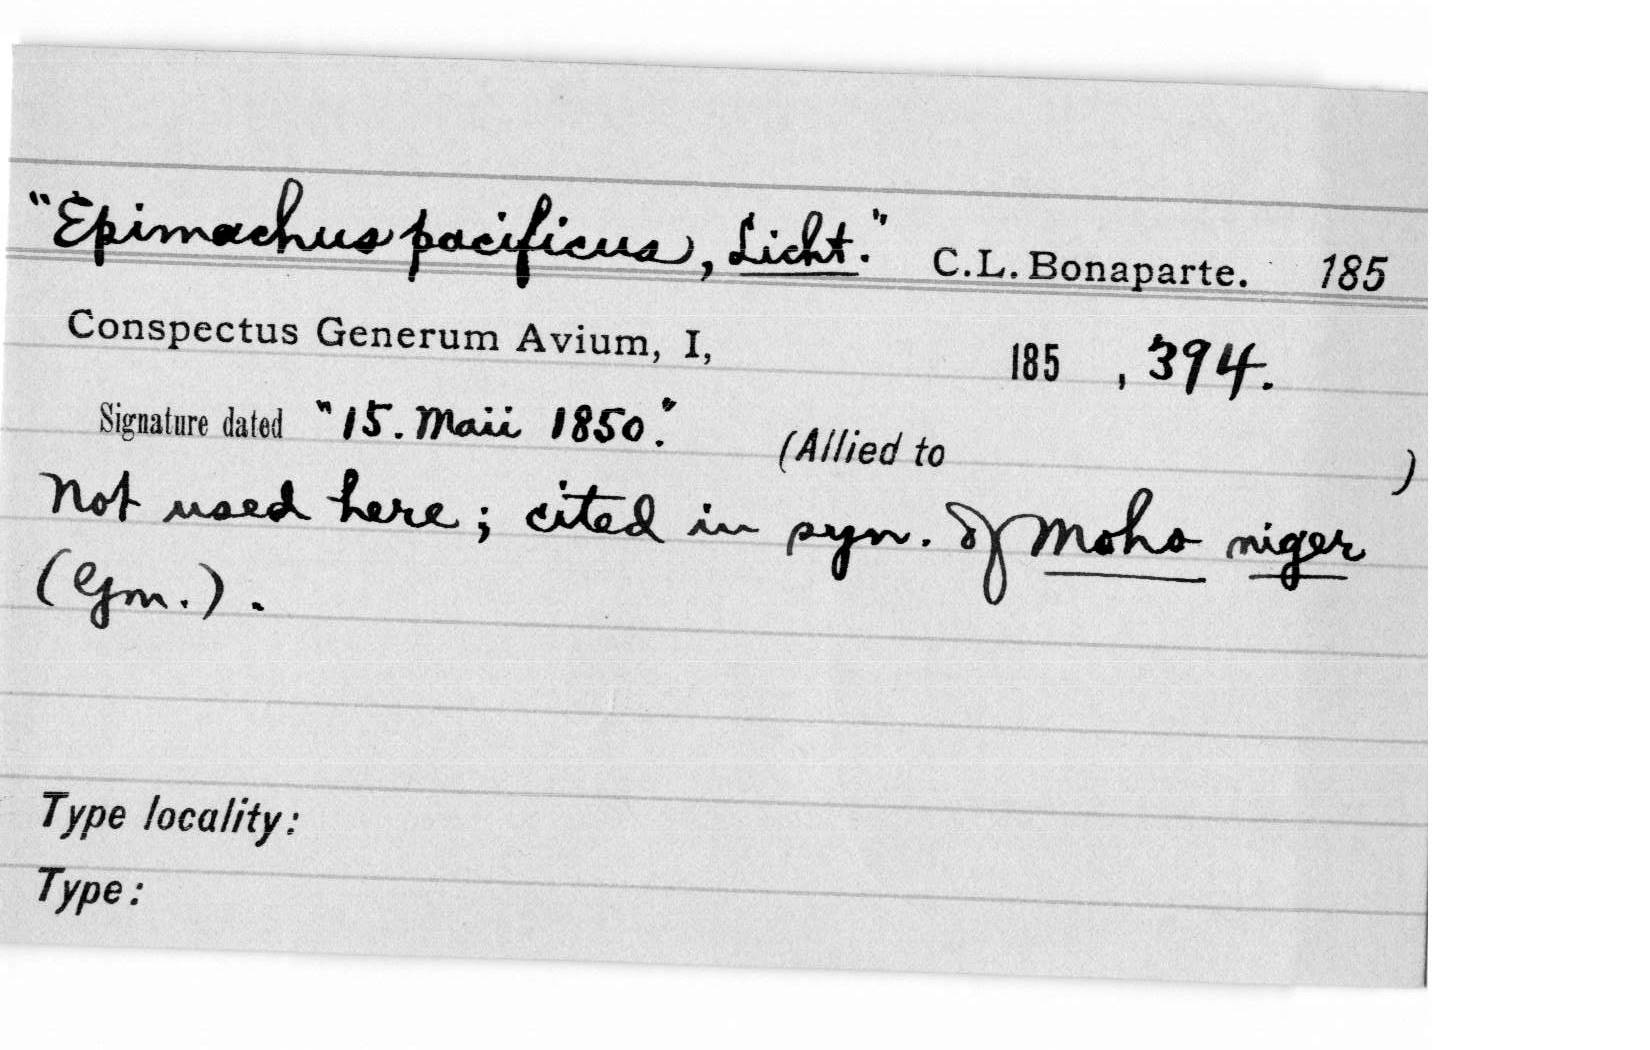 "Epimachus pacificus, Licht." C.L. Bonaparte. 185
Conspectus Generum Avium, I, 185 , 394.
Signature dated "15. Maii 1850." (Allied to )
Not used here; cited in syn. of Moho niger
(Gm.).
Type locality:
Type: